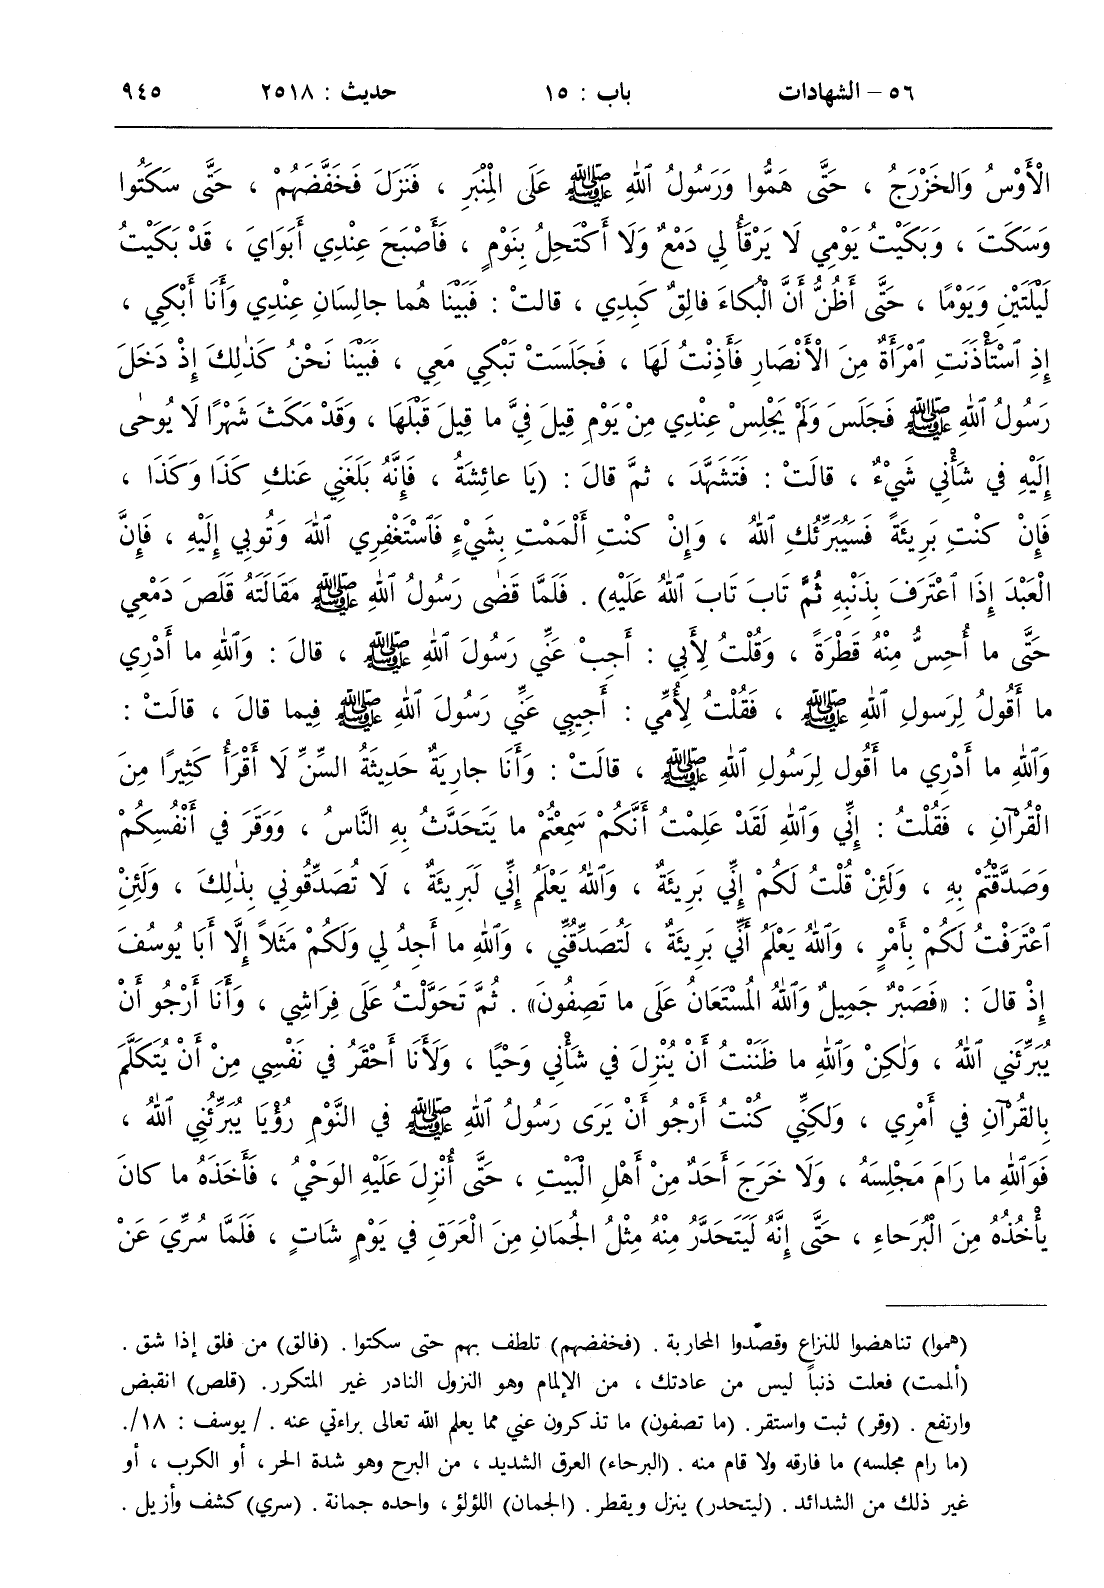 ٥٦ – الشهادات باب : ١٥ حديث : ٢٥١٨ ٩٤٥
الْأَوْسُ وَالخَزْرَجُ ، حَتَّى هَمُّوا وَرَسُولُ ٱللهِ ﷺ عَلَى الْمِنْبَرِ ، فَنَزَلَ فَخَفَّضَهُمْ ، حَتَّى سَكَتُوا
وَسَكَتَ ، وَبَكَيْتُ يَوْمِي لَا يَرْقَأُ لِي دَمْعٌ وَلَا أَكْتَحِلُ بِنَوْمٍ ، فَأَصْبَحَ عِنْدِي أَبَوَايَ ، قَدْ بَكَيْتُ
لَيْلَتَيْنِ وَيَوْمًا ، حَتَّى أَظُنُّ أَنَّ الْبُكاءَ فالِقٌ كَبِدِي ، قالَتْ : فَبَيْنَا هُما جالِسانِ عِنْدِي وَأَنَا أَبْكِي ،
إِذِ ٱسْتَأْذَنَتِ ٱمْرَأَةٌ مِنَ الْأَنْصَارِ فَأَذِنْتُ لَهَا ، فَجَلَسَتْ تَبْكِي مَعِي ، فَبَيْنَا نَحْنُ كَذٰلِكَ إِذْ دَخَلَ
رَسُولُ ٱللهِ ﷺ فَجَلَسَ وَلَمْ يَجْلِسْ عِنْدِي مِنْ يَوْمِ قِيلَ فِيَّ ما قِيلَ قَبْلَهَا ، وَقَدْ مَكَثَ شَهْرًا لَا يُوحٰى
إِلَيْهِ في شَأْنِي شَيْءٌ ، قالَتْ : فَتَشَهَّدَ ، ثمَّ قالَ : (يَا عائِشَةُ ، فَإِنَّهُ بَلَغَنِي عَنكِ كَذَا وَكَذَا ،
فَإِنْ كنْتِ بَرِيئَةً فَسَيُبَرِّئُكِ ٱللهُ ، وَإِنْ كنْتِ أَلْمَمْتِ بِشَيْءٍ فَٱسْتَغْفِرِي ٱللهَ وَتُوبِي إِلَيْهِ ، فَإِنَّ
الْعَبْدَ إِذَا ٱعْتَرَفَ بِذَنْبِهِ ثُمَّ تَابَ تَابَ ٱللهُ عَلَيْهِ) . فَلَمَّا قَضٰى رَسُولُ ٱللهِ ﷺ مَقَالَتَهُ قَلَصَ دَمْعِي
حَتَّى ما أُحِسُّ مِنْهُ قَطْرَةً ، وَقُلْتُ لِأَبِي : أَجِبْ عَنِّي رَسُولَ ٱللهِ ﷺ ، قالَ : وَٱللهِ ما أَدْرِي
ما أَقُولُ لِرَسولِ ٱللهِ ﷺ ، فَقُلْتُ لِأُمِّي : أَجِيبِي عَنِّي رَسُولَ ٱللهِ ﷺ فِيما قالَ ، قالَتْ :
وَٱللهِ ما أَدْرِي ما أَقُول لِرَسُولِ ٱللهِ ﷺ ، قالَتْ : وَأَنَا جارِيَةٌ حَدِيثَةُ السِّنِّ لَا أَقْرَأُ كَثِيرًا مِنَ
الْقُرْآنِ ، فَقُلْتُ : إِنِّي وَٱللهِ لَقَدْ عَلِمْتُ أَنَّكُمْ سَمِعْتُمْ ما يَتَحَدَّثُ بِهِ النَّاسُ ، وَوَقَرَ في أَنْفُسِكُمْ
وَصَدَّقْتُمْ بِهِ ، وَلَئِنْ قُلْتُ لَكُمْ إِنِّي بَرِيئَةٌ ، وَٱللهُ يَعْلَمُ إِنِّي لَبَرِيئَةٌ ، لَا تُصَدِّقُونِي بِذٰلِكَ ، وَلَئِنْ
ٱعْتَرَفْتُ لَكُمْ بِأَمْرٍ ، وَٱللهُ يَعْلَمُ أَنِّي بَرِيئَةٌ ، لَتُصَدِّقُنِّي ، وَٱللهِ ما أَجِدُ لِي وَلَكُمْ مَثَلاً إِلَّا أَبَا يُوسُفَ
إِذْ قالَ : «فَصَبْرٌ جَمِيلٌ وَٱللهُ المُسْتَعَانُ عَلَى ما تَصِفُونَ» . ثُمَّ تَحَوَّلْتُ عَلَى فِرَاشِي ، وَأَنَا أَرْجُو أَنْ
يُبَرِّئَنِي ٱللهُ ، وَلٰكِنْ وَٱللهِ ما ظَنَنْتُ أَنْ يُنْزِلَ في شَأْنِي وَحْيًا ، وَلَأَنَا أَحْقَرُ في نَفْسِي مِنْ أَنْ يُتَكَلَّمَ
بِالقُرْآنِ في أَمْرِي ، وَلٰكِنِّي كُنْتُ أَرْجُو أَنْ يَرَى رَسُولُ ٱللهِ ﷺ في النَّوْمِ رُؤْيَا يُبَرِّئُنِي ٱللهُ ،
فَوَٱللهِ ما رَامَ مَجْلِسَهُ ، وَلَا خَرَجَ أَحَدٌ مِنْ أَهْلِ الْبَيْتِ ، حَتَّى أُنْزِلَ عَلَيْهِ الوَحْيُ ، فَأَخَذَهُ ما كانَ
يأْخُذُهُ مِنَ الْبُرَحاءِ ، حَتَّى إِنَّهُ لَيَتَحَدَّرُ مِنْهُ مِثْلُ الجُمَانِ مِنَ الْعَرَقِ في يَوْمٍ شَاتٍ ، فَلَمَّا سُرِّيَ عَنْ
(هموا) تناهضوا للنزاع وقصّدوا المحاربة . (فخفضهم) تلطف بهم حتى سكتوا. (فالق) من فلق إذا شق .
(ألممت) فعلت ذنباً ليس من عادتك ، من الإلمام وهو النزول النادر غير المتكرر. (قلص) انقبض
وارتفع . (وقر) ثبت واستقر. (ما تصفون) ما تذكرون عني مما يعلم الله تعالى براءتي عنه . / يوسف : ١٨/.
(ما رام مجلسه) ما فارقه ولا قام منه . (البرحاء) العرق الشديد ، من البرح وهو شدة الحر، أو الكرب ، أو
غير ذلك من الشدائد . (ليتحدر) ينزل ويقطر. (الجمان) اللؤلؤ ، واحده جمانة . (سري) كشف وأزيل .